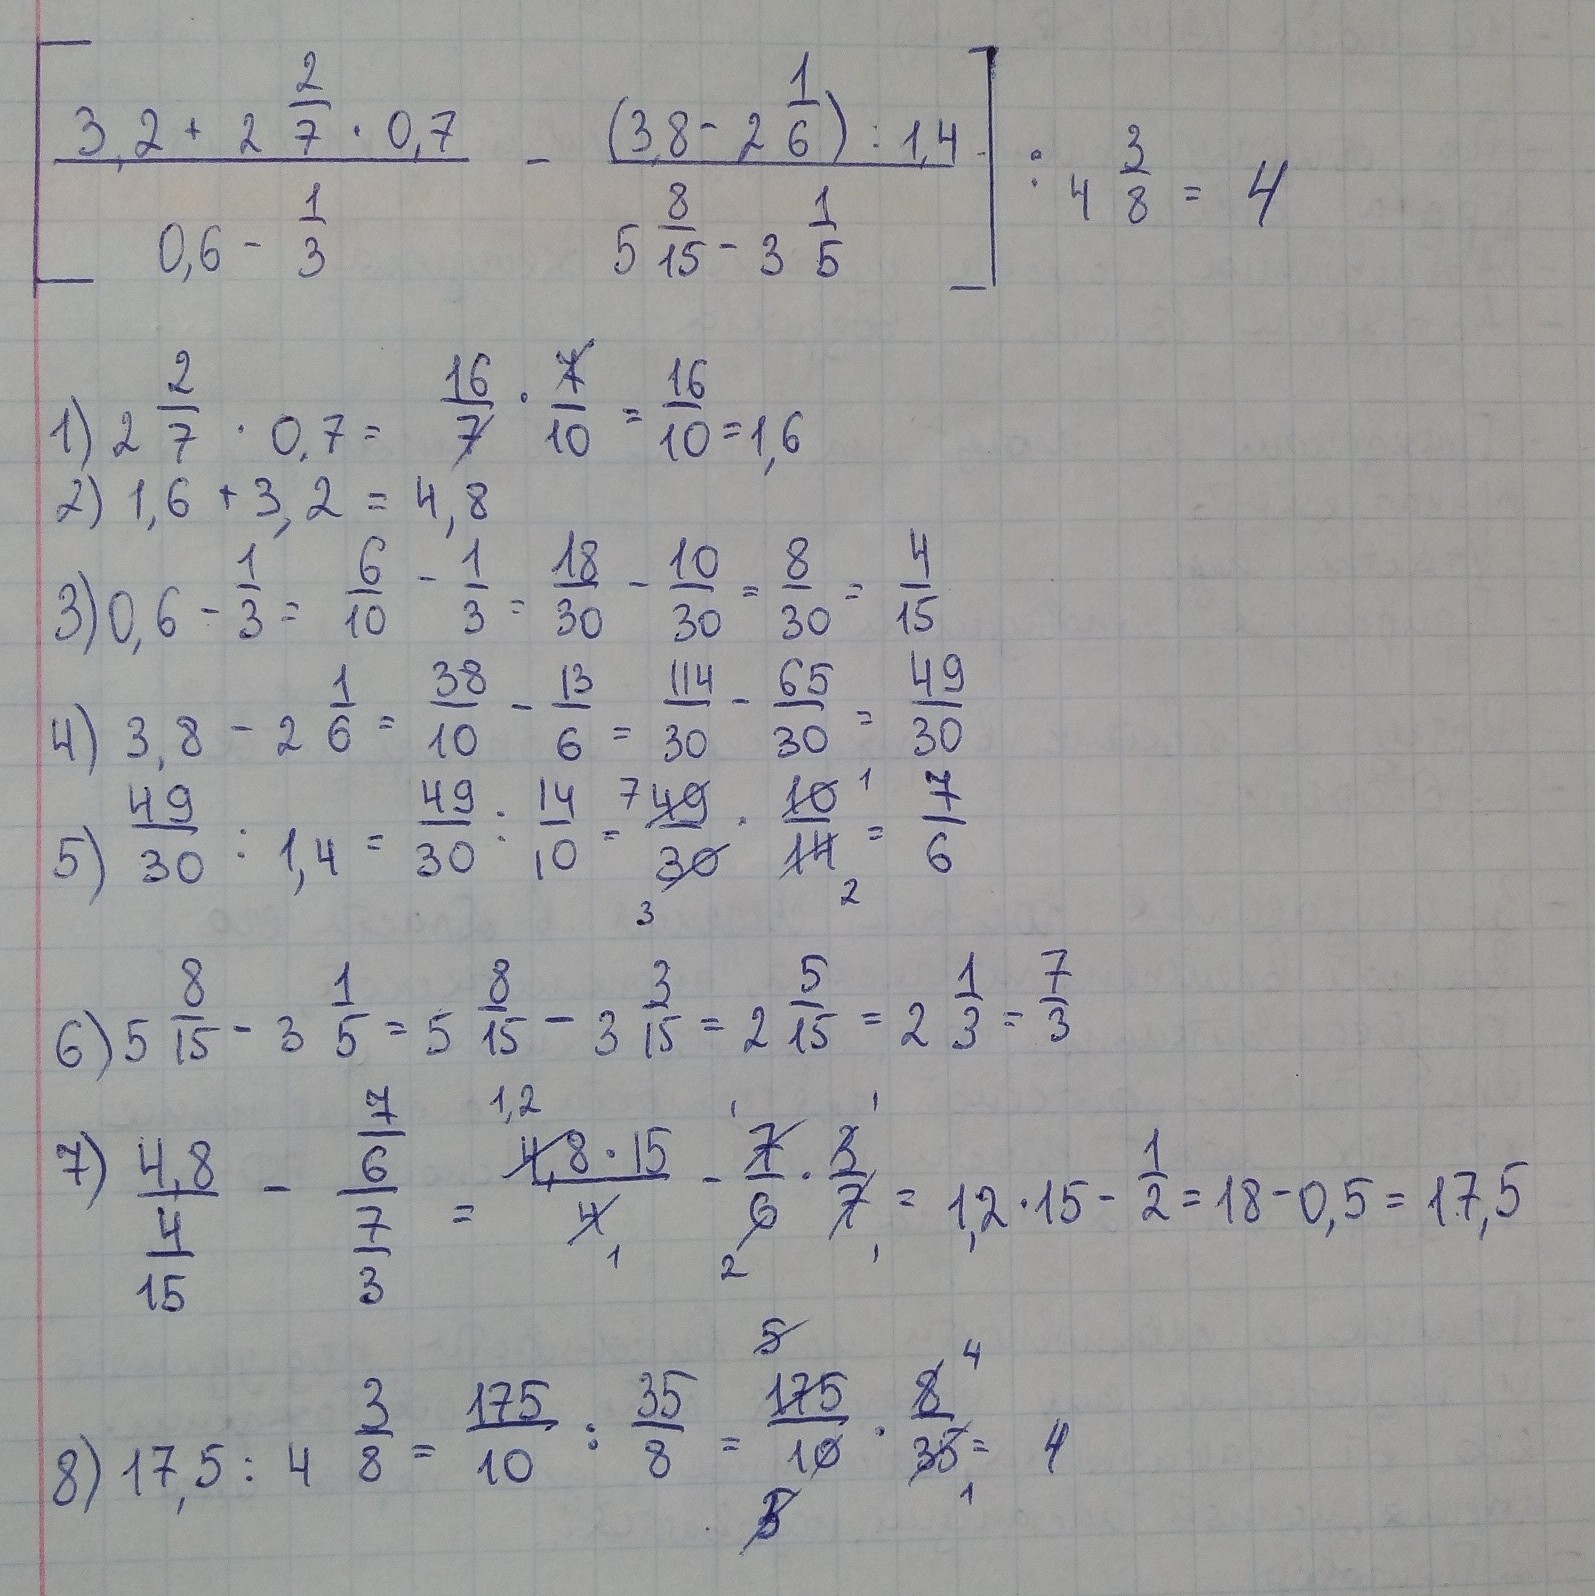 [(3,2 + 2 2/7 · 0,7)/(0,6 - 1/3) - ((3,8 - 2 1/6) : 1,4)/(5 8/15 - 3 1/5)] : 4 3/8 = 4
1) 2 2/7 · 0,7 = 16/7 · 7/10 = 16/10 = 1,6
2) 1,6 + 3,2 = 4,8
3) 0,6 - 1/3 = 6/10 - 1/3 = 18/30 - 10/30 = 8/30 = 4/15
4) 3,8 - 2 1/6 = 38/10 - 13/6 = 114/30 - 65/30 = 49/30
5) 49/30 : 1,4 = 49/30 : 14/10 = 7 49/30 3 · 10 1/14 2 = 7/6
6) 5 8/15 - 3 1/5 = 5 8/15 - 3 3/15 = 2 5/15 = 2 1/3 = 7/3
7) 4,8/(4/15) - (7/6)/(7/3) = 1,2 4,8 · 15/4 1 - 1 7/6 2 · 3 1/7 1 = 1,2 · 15 - 1/2 = 18 - 0,5 = 17,5
8) 17,5 : 4 3/8 = 175/10 : 35/8 = 5 175/10 5 · 8 4/35 1 = 4